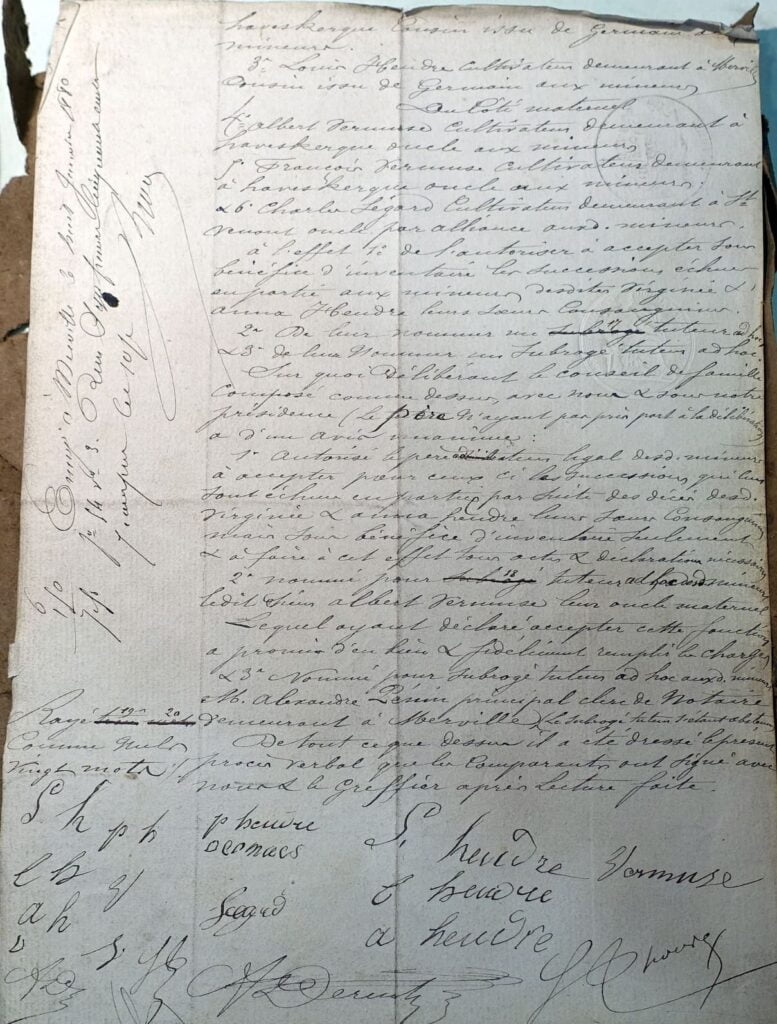 haveskerque Cousin issu de Germain
mineurs.
3° Louis Hendre Cultivateur demeurant à Merville
Cousin issu de Germain aux mineurs
Du Côté maternel
4° Albert Vermusse Cultivateur demeurant à
haveskerque oncle aux mineurs
5° François Vermusse Cultivateur demeurant
à haveskerque oncle aux mineurs.
& 6° Charles Ségard Cultivateur demeurant à St
Venant oncle par alliance auxd. mineurs.
à l'effet 1° de l'autoriser à accepter sous
bénéfice d'inventaire les successions échues
en partie aux mineurs desdites Virginie &
anna Hendre leurs sœurs Consanguines.
2° De leur nommer un subrogé 17 tuteur ad hoc
& 3° de leur Nommer un Subrogé tuteur ad hoc.
Sur quoi Délibérant le Conseil de famille
Composé comme dessus, avec nous & sous notre
présidence (Le père n'ayant pas pris part à la délibération)
a d'un avis unanime :
1° Autorisé le père legal desd. mineurs
à accepter pour ceux ci les successions qui leur
sont échues en partie par suite des décès desd.
Virginie & anna hendre leurs sœurs Consanguines
mais sous bénéfice d'inventaire seulement
& à faire à cet effet tous actes & déclarations nécessaires
2° nommé pour subrogé 18 tuteur ad hoc desd mineurs
ledit sieur albert Vermusse leur oncle maternel
Lequel ayant déclaré accepter cette fonction
a promis d'en bien & fidèlement remplir les charges
& 3° Nommé pour Subrogé tuteur ad hoc auxd. mineurs
M. Alexandre Pénin principal clerc de Notaire
demeurant à Merville
De tout ce que dessus il a été dressé le présent
procès verbal que les Comparants ont signé avec
nous & le Greffier après Lecture faite.
Rayé 19 20
Comme nuls
vingt mots
Enregé à Merville le huit Janvier 1880
fo 14 Vo 3. Reçu
S. h p h
p hendre
S. hendre Vermusse
l h
Segard
l hendre
a h
a hendre